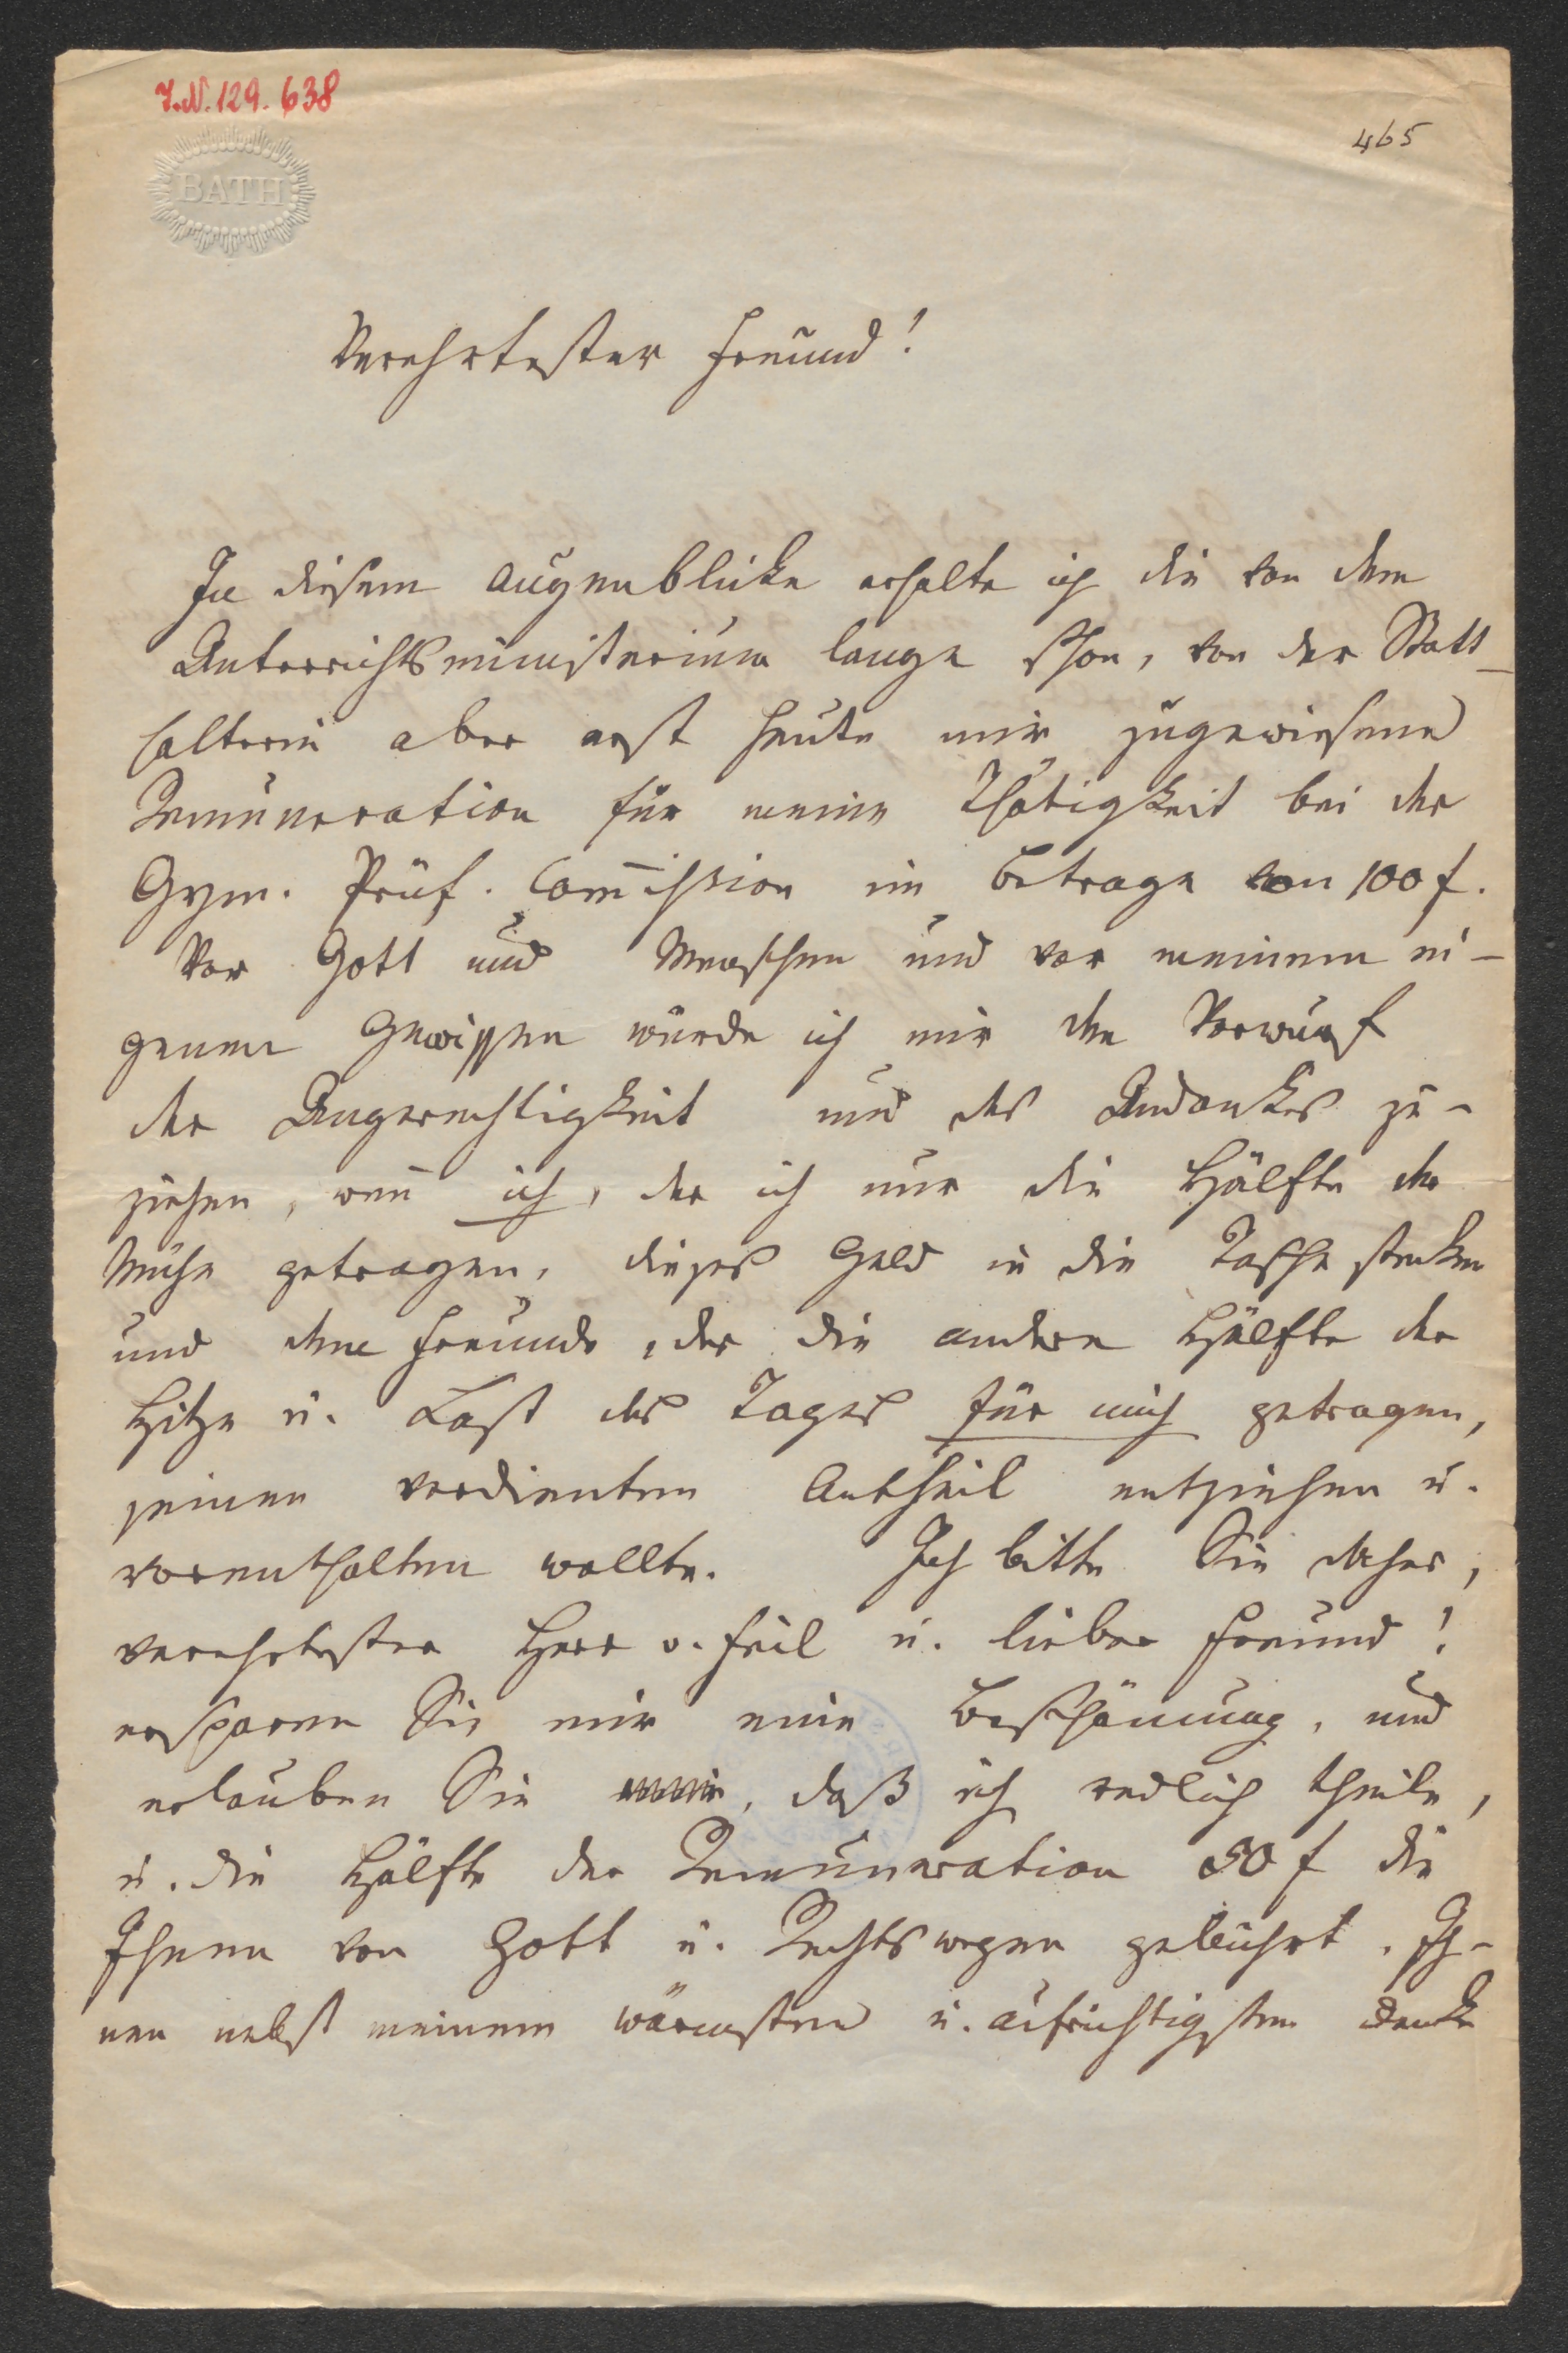 I.N. 129.638
465
BATH
Verehrtester Freund!
In diesem Augenblicke erhalte ich die von dem
Unterrichtsministerium lange schon, von der Statt-
halterei aber erst heute mir zugewiesene
Remuneration für meine Thätigkeit bei der
Gym. Prüf. Com̄ission im Betrage von 100 f.
Vor Gott und Menschen und vor meinem ei-
genen Gewissen würde ich mir den Vorwurf
der Ungerechtigkeit und des Undankes zu-
ziehen, wen̄ ich, der ich nur die Hälfte der
Mühe getragen, dieses Geld in die Tasche stecken
und dem Freunde, der die andere Hälfte der
Hitze u. Last des Tages für mich getragen,
seinen verdienten Antheil entziehen u.
vorenthalten wollte. Ich bitte Sie daher,
verehrtester Herr v. Feil u. lieber Freund!
ersparen Sie mir eine Beschämung, und
erlauben Sie, daß ich redlich theile,
u. die Hälfte der Remuneration 50 f die
Ihnen von Gott u. Rechtswegen gebührt, Ih-
nen nebst meinem wärmsten u. aufrichtigsten Danke